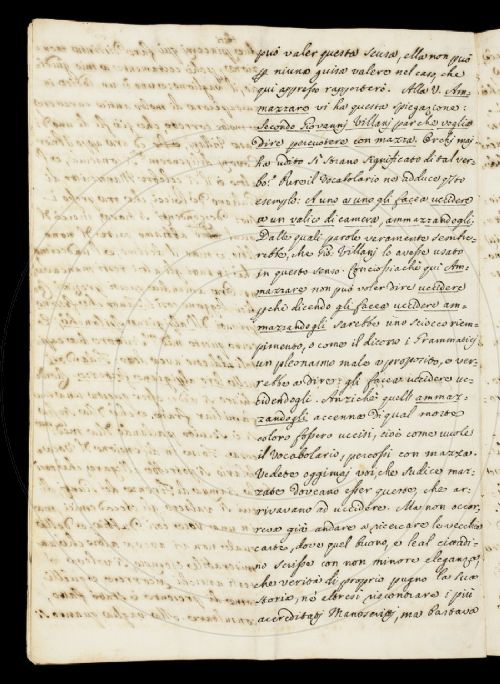 può valer questa scusa, Ma non può
p niuna guisa valere nel caso, che
qui appresso rapporterò. Alla V. Am-
mazzare vi ha questa spiegazione:
Secondo Giovannj Villanj par che voglia
dire percuotere con mazza. Or chj maj
ha udito sì strano significato di tal ver-
bo? Pure il Vocabolario ne adduce qsto
esempio: A uno a uno gli facea uccidere
a un valico di camera, ammazzandogli,
Dalle quali parole veramente sembre-
rebbe, che Gio: Villanj lo avesse usato
in questo senso. Conciossiachè qui Am-
mazzare non può voler dire uccidere
pchè dicendo gli facea uccidere am-
mazzandogli sarebbe uno sciocco riem-
pimento, o come il dicono i Grammaticj
un pleonasmo male a proposito, e ver-
rebbe a dire: gli facea uccidere uc-
cidendogli. Anzichè quell' ammaz-
zandogli accenna di qual morte
coloro fossero uccisi, cioè come vuole
il Vocabolario, percossi con mazza.
Vedete oggimaj voi, che sudice maz-
zate doveano esser queste, che ar-
rivavano ad uccidere. Ma non occor-
rea già andare a ricercare le vecchie
carte, dove quel buono, e leal cittadi-
no scrisse con non minore eleganza,
che verità di proprio pugno la sua
storia, nè altresì riscontrare i più
accreditatj Manoscrittj, ma bastava